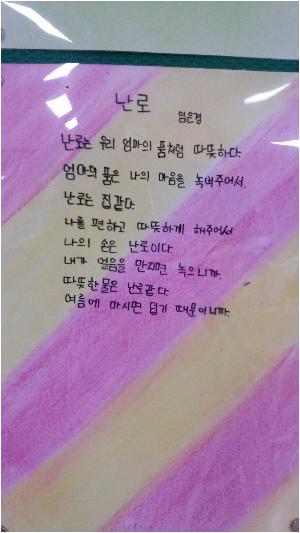 난로
임은경
난로는 우리 엄마의 품처럼 따뜻하다.
엄마의 품은 나의 마음을 녹여주어서.
난로는 집같다.
나를 편하고 따뜻하게 해주어서
나의 손은 난로이다
내가 얼음을 만지면 녹으니까.
따뜻한물은 난로같다.
여름에 마시면 덥기 때문이니까.